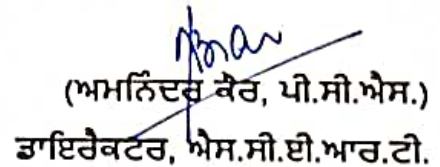 (ਅਮਨਿੰਦਰ ਕੌਰ, ਪੀ.ਸੀ.ਐਸ.)
ਡਾਇਰੈਕਟਰ, ਐਸ.ਸੀ.ਈ.ਆਰ.ਟੀ.